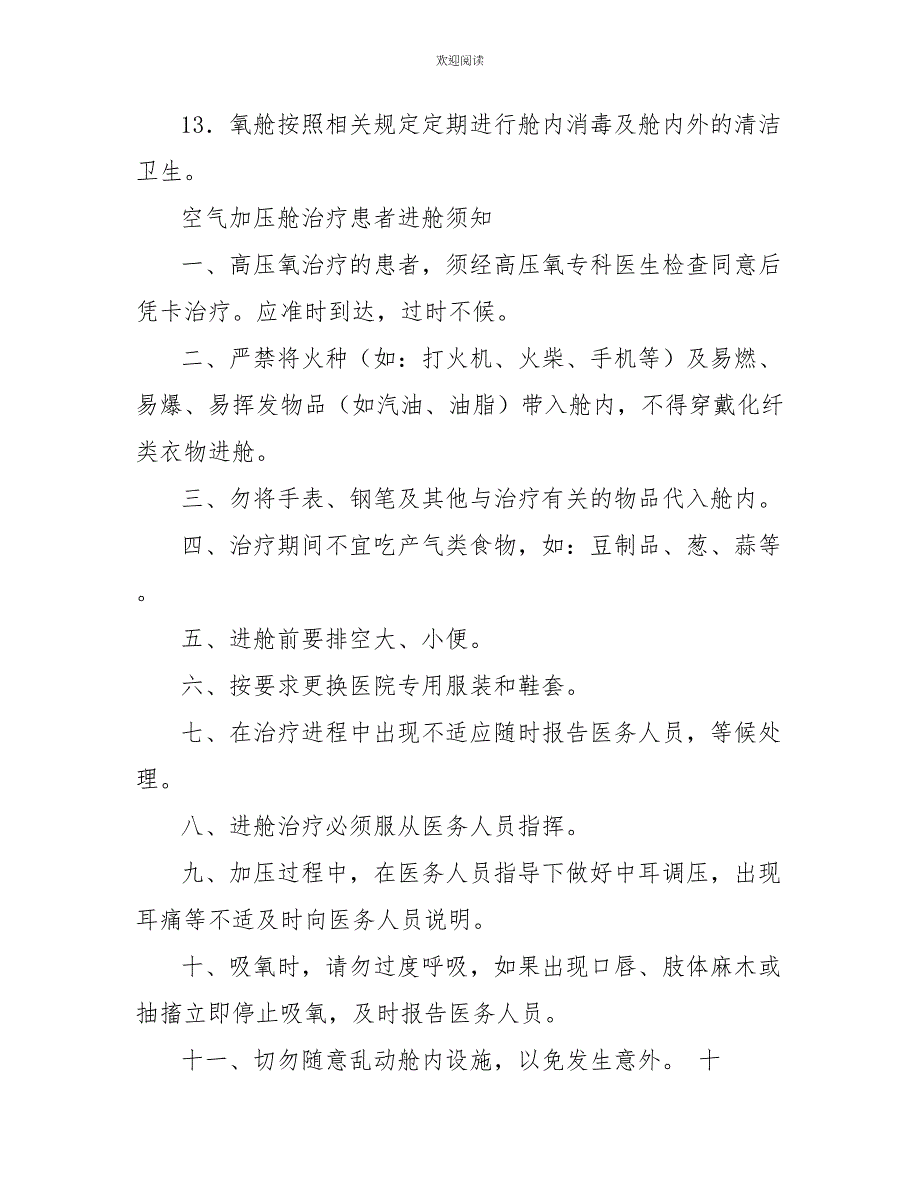 欢迎阅读
13．氧舱按照相关规定定期进行舱内消毒及舱内外的清洁
卫生。
空气加压舱治疗患者进舱须知
一、高压氧治疗的患者，须经高压氧专科医生检查同意后
凭卡治疗。应准时到达，过时不候。
二、严禁将火种（如：打火机、火柴、手机等）及易燃、
易爆、易挥发物品（如汽油、油脂）带入舱内，不得穿戴化纤
类衣物进舱。
三、勿将手表、钢笔及其他与治疗有关的物品代入舱内。
四、治疗期间不宜吃产气类食物，如：豆制品、葱、蒜等
。
五、进舱前要排空大、小便。
六、按要求更换医院专用服装和鞋套。
七、在治疗进程中出现不适应随时报告医务人员，等候处
理。
八、进舱治疗必须服从医务人员指挥。
九、加压过程中，在医务人员指导下做好中耳调压，出现
耳痛等不适及时向医务人员说明。
十、吸氧时，请勿过度呼吸，如果出现口唇、肢体麻木或
抽搐立即停止吸氧，及时报告医务人员。
十一、切勿随意乱动舱内设施，以免发生意外。 十